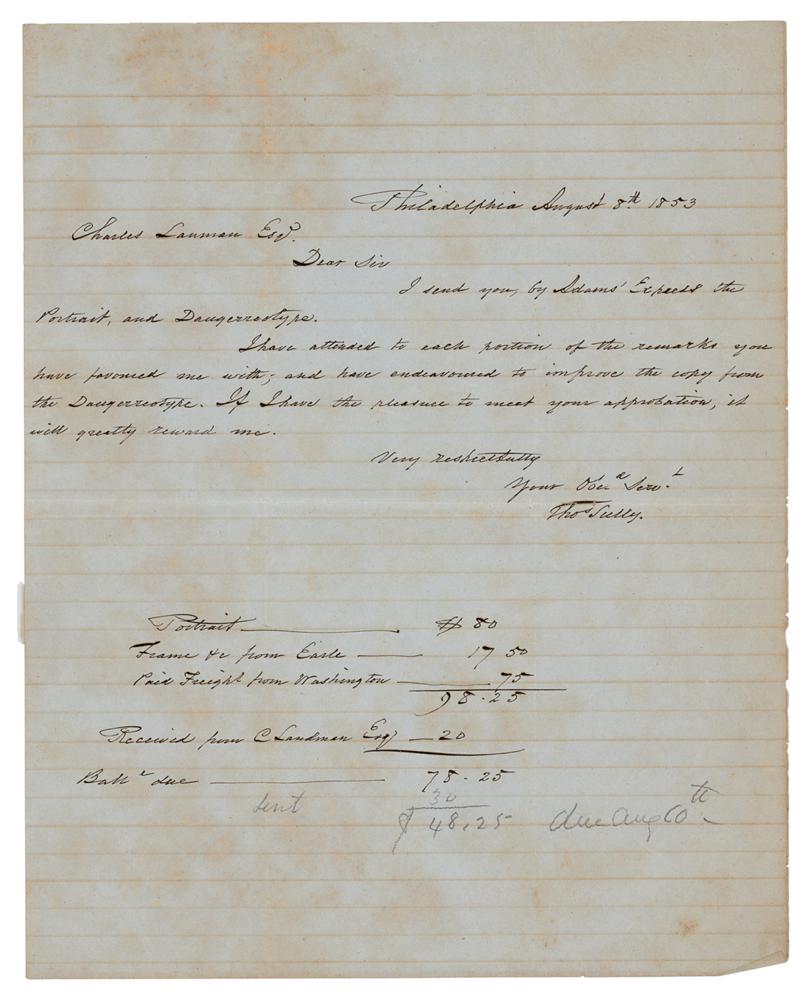 Philadelphia August 8th 1853
Charles Lanman Esqr.
Dear Sir
I send you, by Adams' Express the
Portrait, and Daugerreotype.
I have attended to each portion of the remarks you
have favoured me with; and have endeavoured to improve the copy from
the Daugerreotype. If I have the pleasure to meet your approbation, it
will greatly reward me.
Very respectfully
Your Obed Servt
Thos Sully.
Portrait $ 80
Frame &c from Earle 17 50
Paid Freight from Washington 75
98.25
Received from C Landman Esqr 20
Balle due 78.25
sent 30
$ 48.25 due Aug 10th